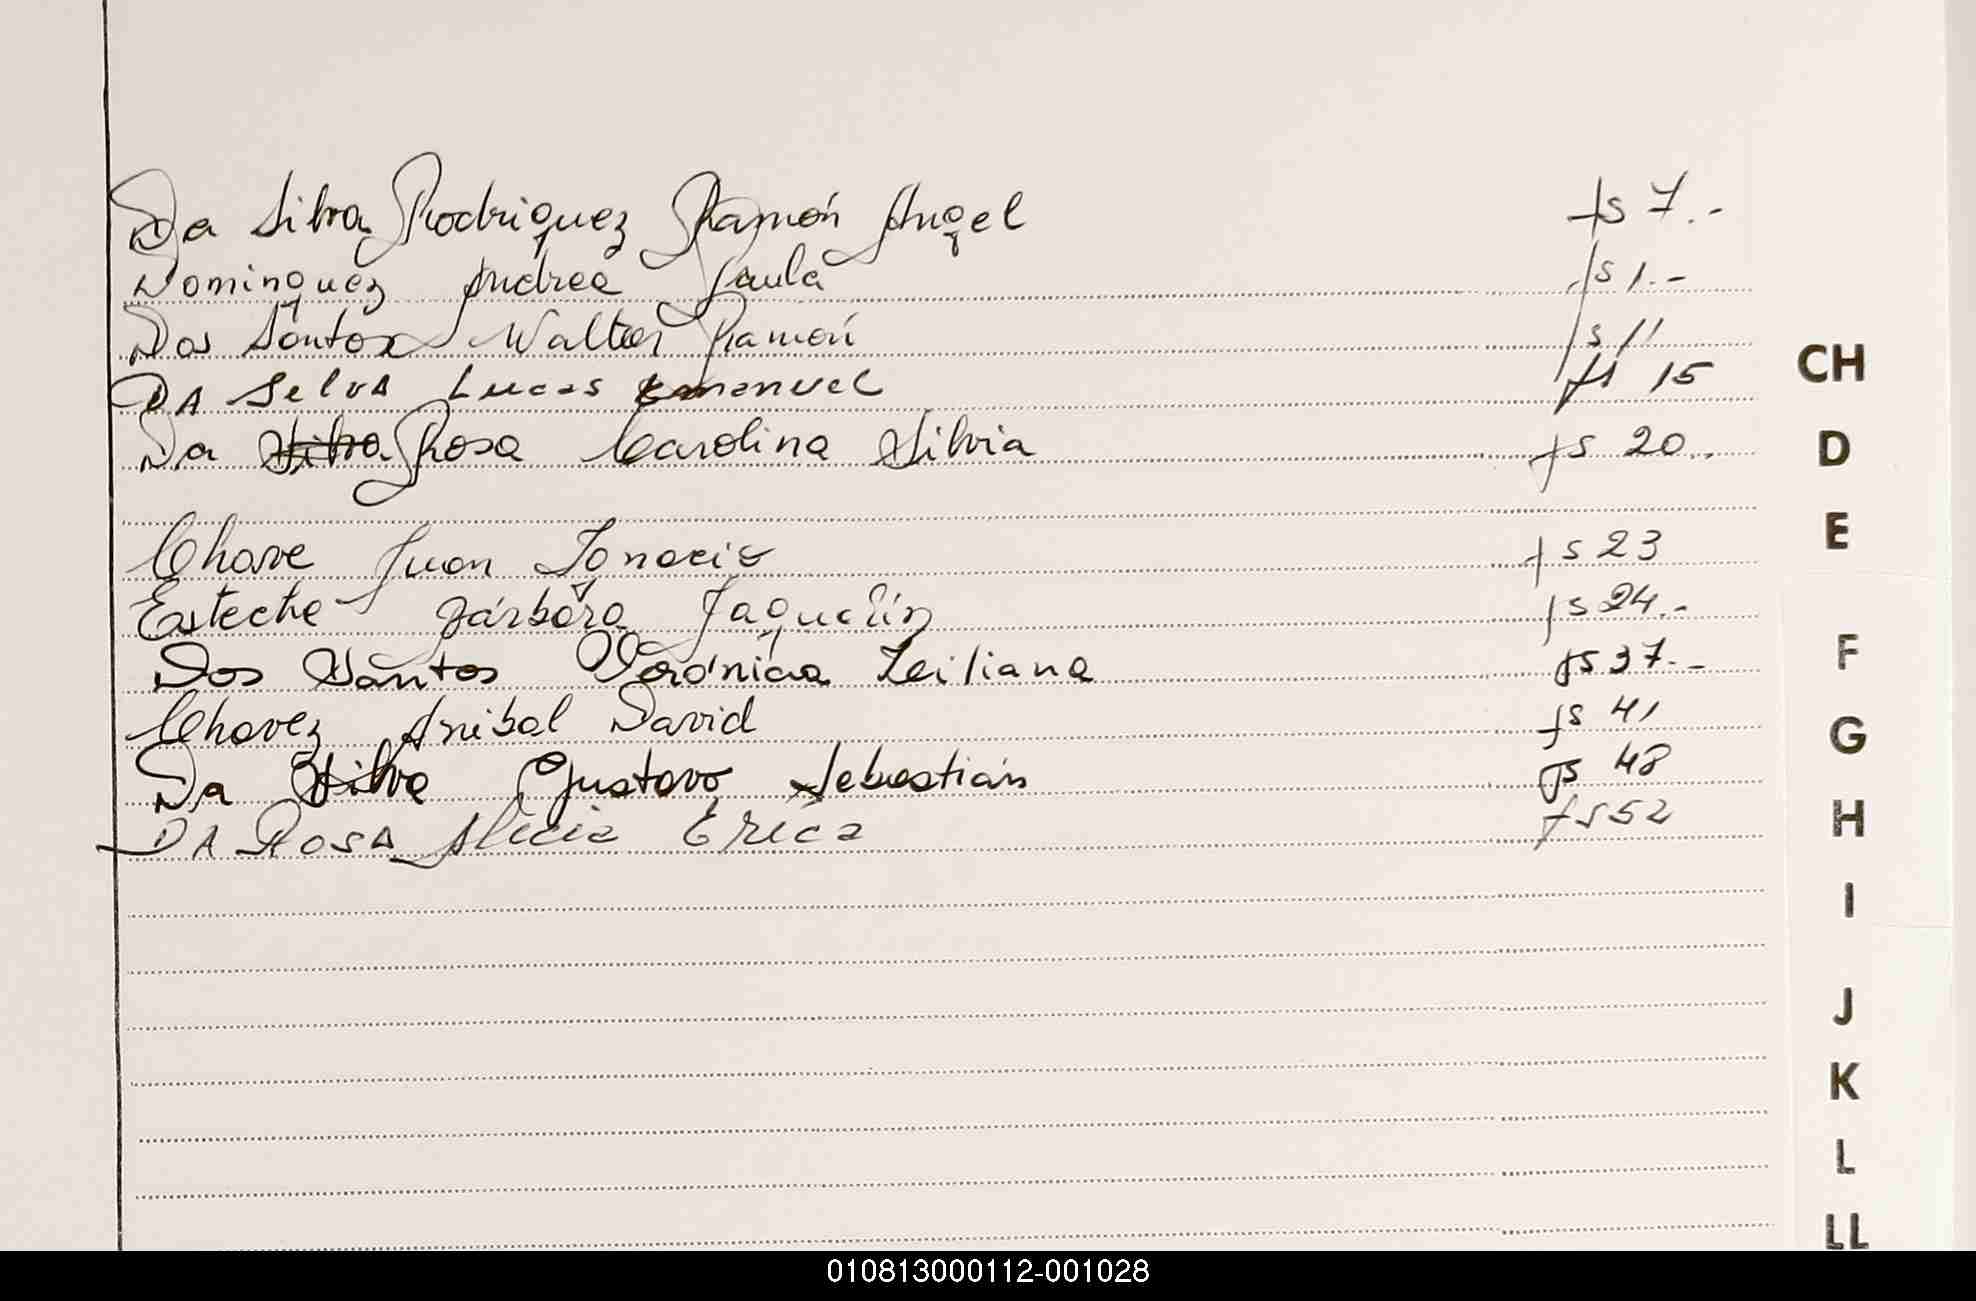 Da Silva Rodriguez Ramón Angel fs 7.-
Dominguez Andrea Paula fs 1.-
Dos Santos Walter Ramón fs 11
DA SelvA Lucas Emanuel fs 15
Da Silva Rosa Carolina Silvia fs 20..
CH
D
E
Chave Juan Ignacio fs 23
Esteche Bárbara Jaquelín fs 24.-
Dos Santos Verónica Leiliana fs 37.-
Chavez Anibal David fs 41
Da Silva Gustavo Sebastián fs 48
DA ROSA Alicia Erica fs 52
F
G
H
I
J
K
L
LL
010813000112-001028